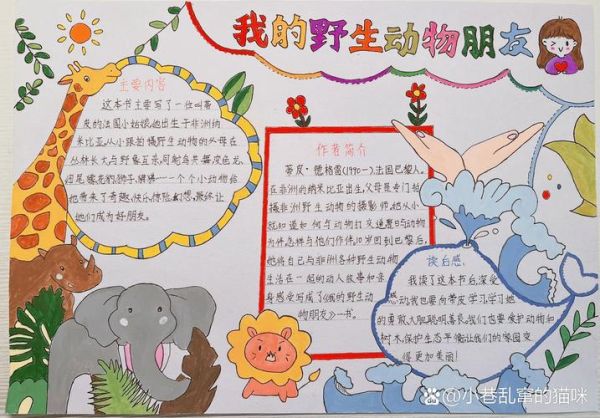 我的野生动物朋友
主要内容
这本书主要写了一位叫蒂
皮的法国小姑娘,她出生于非洲纳
米比亚,从小跟拍摄野生动物的父母在
丛林长大,与野象互亲,同鸵鸟共舞,变色龙、
狒狒、狮子、猎豹一个个小动物给
她带来了奇趣、快乐、惊险、幻想,最终让
她们成为好朋友。
作者简介
蒂皮·德格雷(1990-),法国巴黎人。
在非洲的纳米比亚出生,父母是专门拍
摄非洲野生动物的摄影师,她从小
就知道如何与动物打交道,10岁与动物
为伴,怎样与他们作伴,10岁回到巴黎后,
她将自己与非洲各种野生动物
生活在一起的动人故事和亲
身感受写成了《我的野生动
物朋友》一书。
读后感
我读了这本书后,深受
感动,我也要向蒂皮学习,学习她
的勇敢、大胆、聪明、善良,我们也要爱护动物和
树木,保护生态平衡,让我们的家园变
得更加美丽!
@小巷乱窜的猫咪